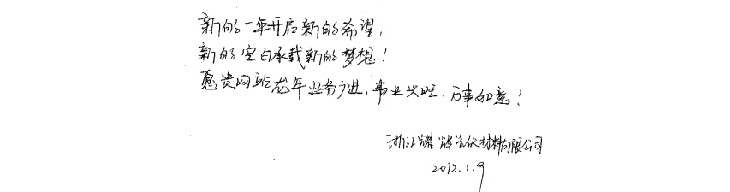 新的一年开启新的希望，
新的空白承载新的梦想！
愿贵网站老年业务广进，事业兴旺、万事如意！
浙江 光伏材料有限公司
2012.1.9